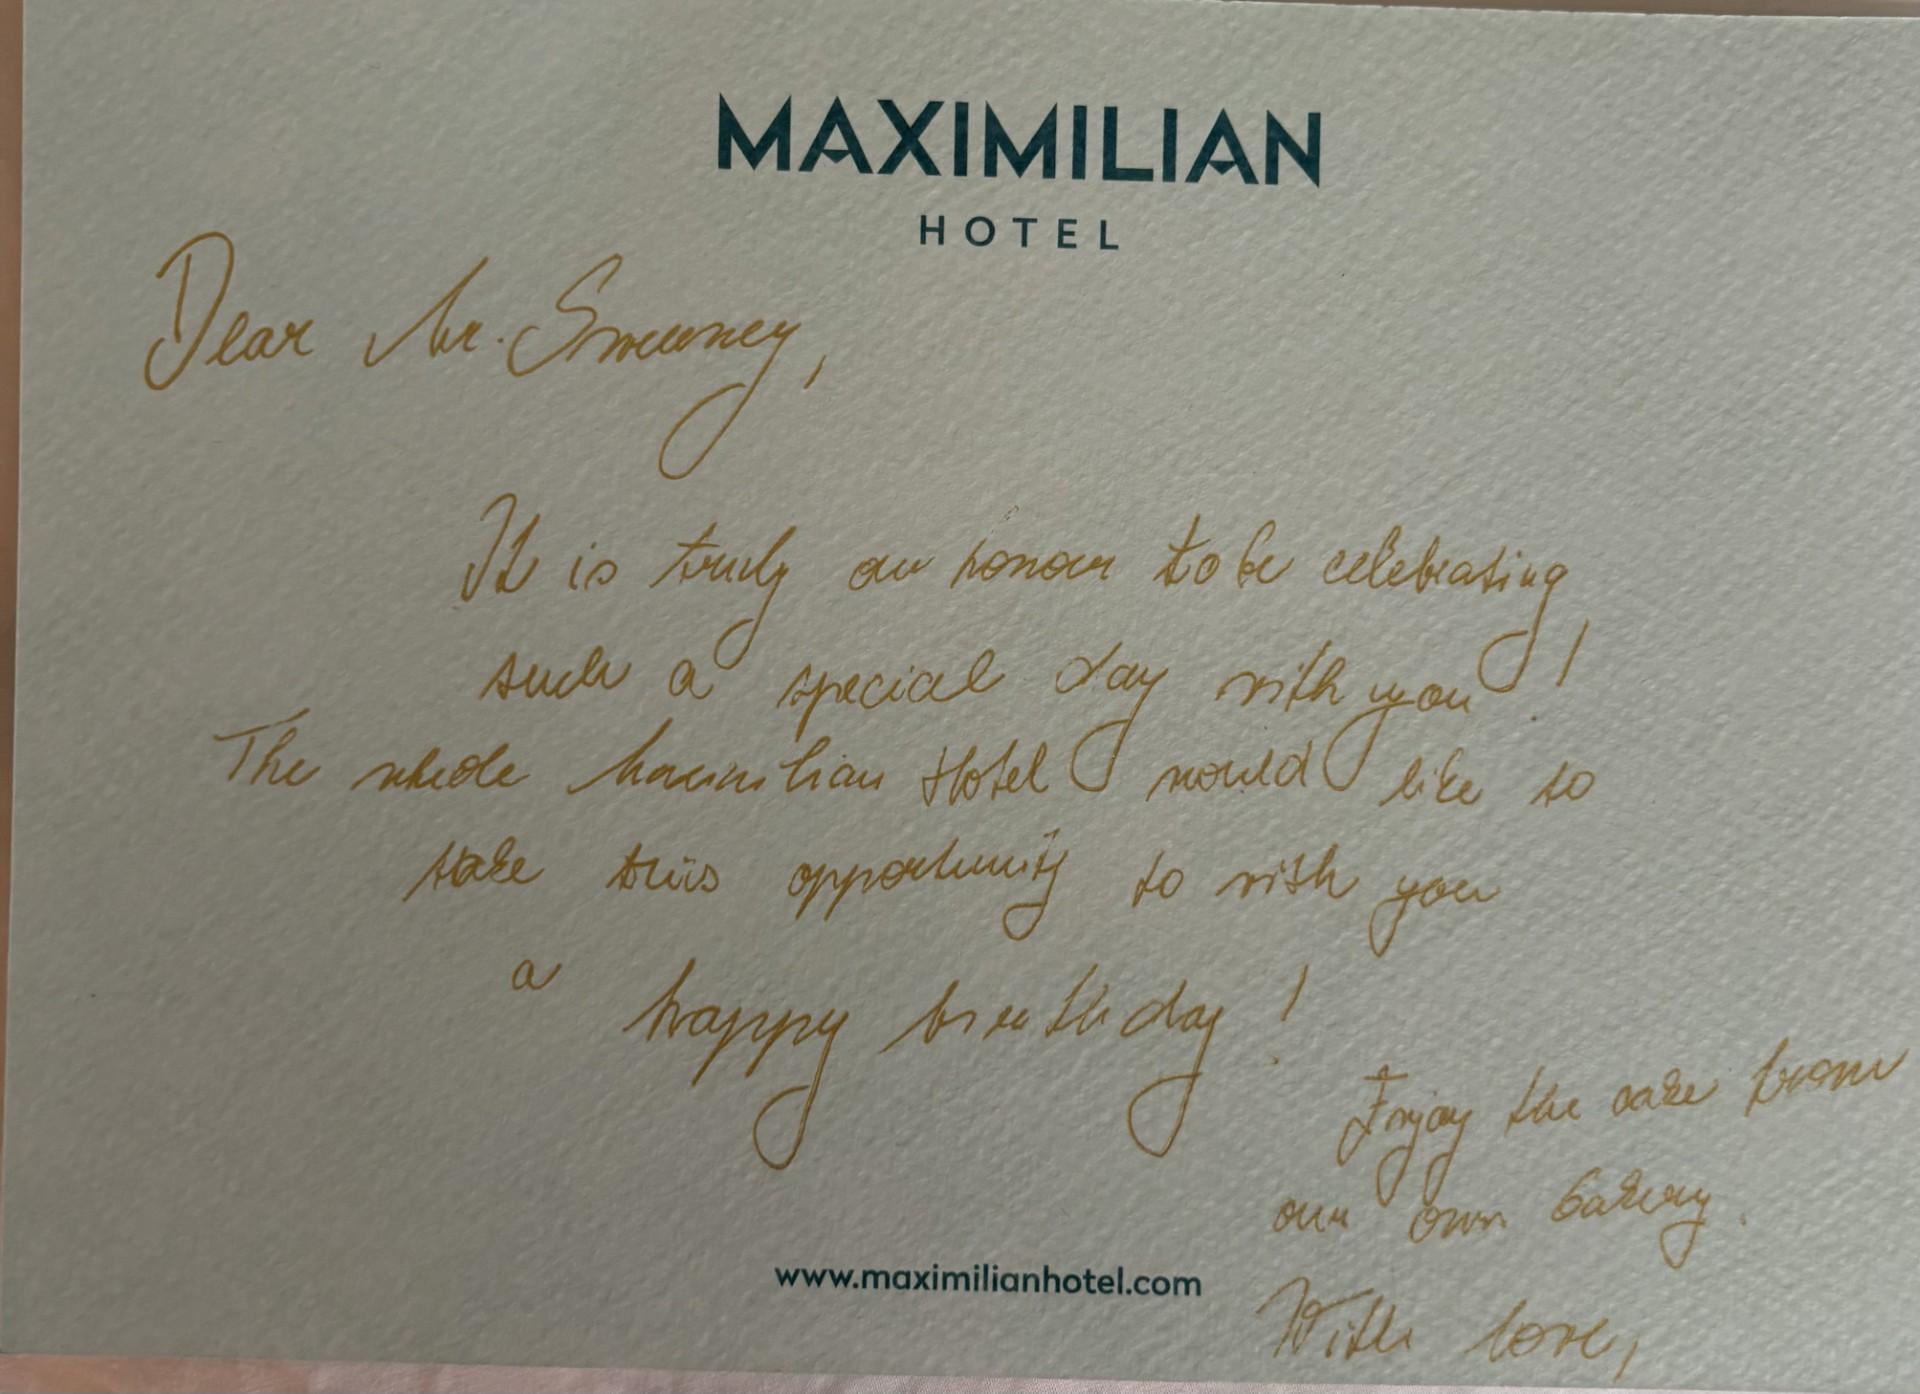 MAXIMILIAN
HOTEL
Dear Mr. Sweeney,
It is truly an honour to be celebrating
such a special day with you!
The whole Maximilian Hotel would like to
take this opportunity to wish you
a happy birthday!
Enjoy the cake from
our own bakery.
With love,
www.maximilianhotel.com